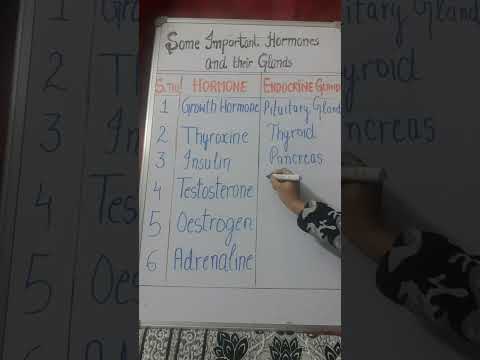 Some Important Hormones
and their Glands
S.No HORMONE ENDOCRINE GLAND
1 Growth Hormone Pituitary Gland
2 Thyroxine Thyroid
3 Insulin Pancreas
4 Testosterone
5 Oestrogen
6 Adrenaline